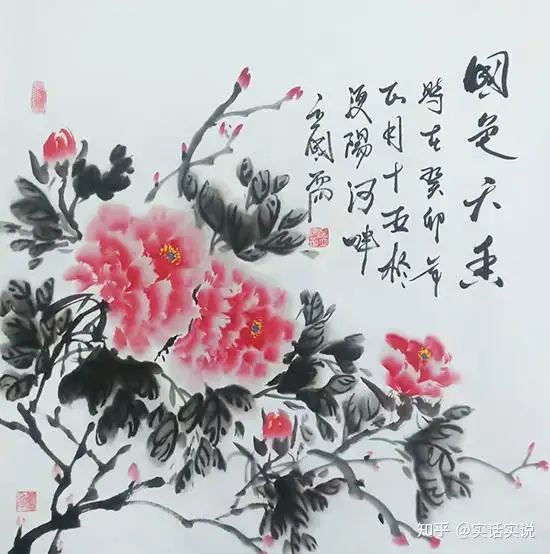 國色天香
時在癸卯年
正月十五於
夏陽河畔
知乎 @实话实说